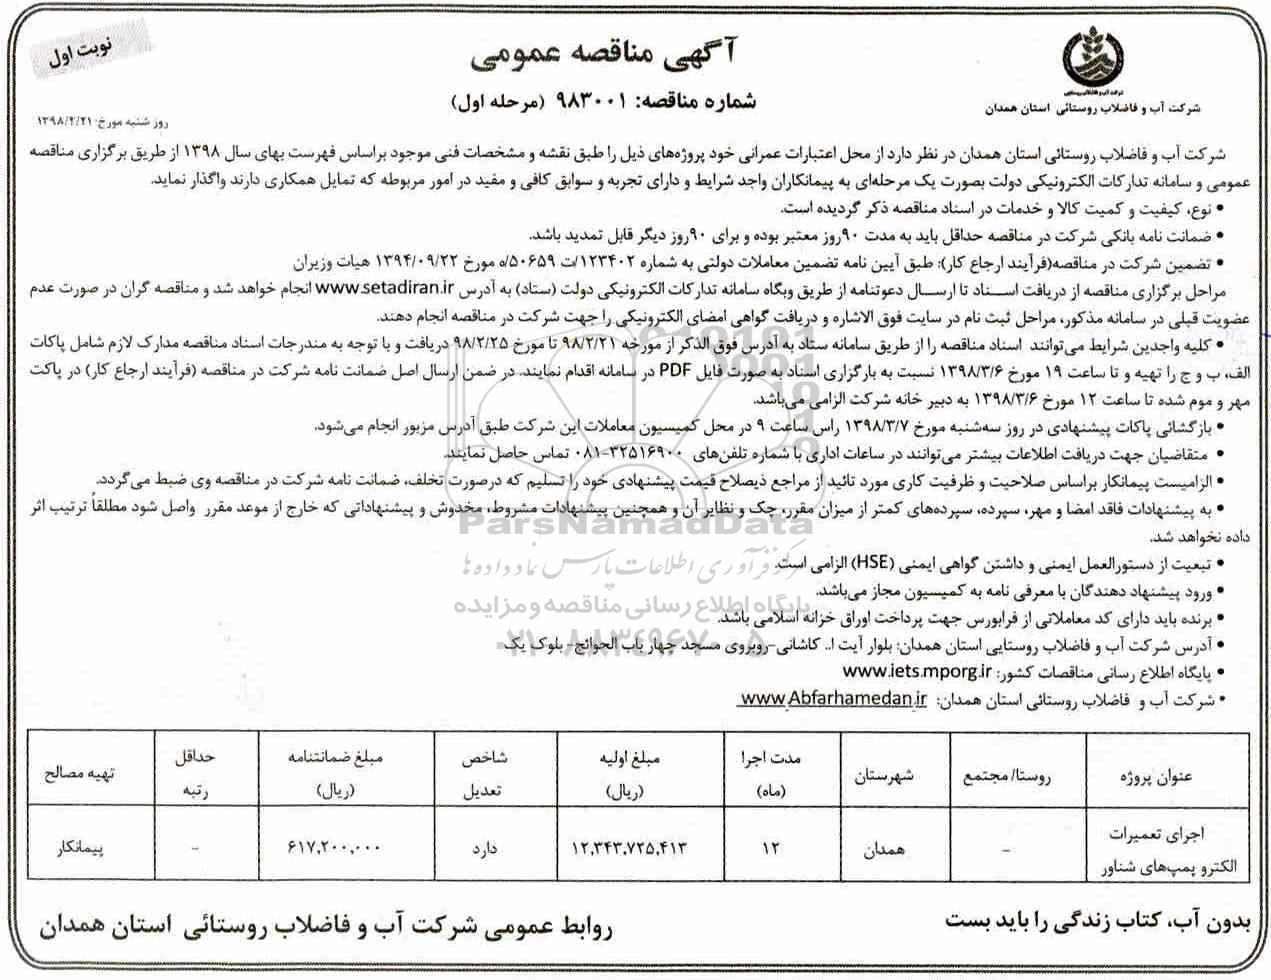 نوبت اول
آگهی مناقصه عمومی
شماره مناقصه: ۹۸۳۰۰۱ (مرحله اول)
شرکت آب و فاضلاب روستایی
شرکت آب و فاضلاب روستائی استان همدان
روز شنبه مورخ: ۱۳۹۸/۲/۲۱
شرکت آب و فاضلاب روستائی استان همدان در نظر دارد از محل اعتبارات عمرانی خود پروژه‌های ذیل را طبق نقشه و مشخصات فنی موجود براساس فهرست بهای سال ۱۳۹۸ از طریق برگزاری مناقصه
عمومی و سامانه تدارکات الکترونیکی دولت بصورت یک مرحله‌ای به پیمانکاران واجد شرایط و دارای تجربه و سوابق کافی و مفید در امور مربوطه که تمایل همکاری دارند واگذار نماید.
• نوع، کیفیت و کمیت کالا و خدمات در اسناد مناقصه ذکر گردیده است.
• ضمانت نامه بانکی شرکت در مناقصه حداقل باید به مدت ۹۰روز معتبر بوده و برای ۹۰روز دیگر قابل تمدید باشد.
• تضمین شرکت در مناقصه(فرآیند ارجاع کار): طبق آیین نامه تضمین معاملات دولتی به شماره ۱۲۳۴۰۲/ت ۵۰۶۵۹/ه مورخ ۱۳۹۴/۰۹/۲۲ هیات وزیران
مراحل برگزاری مناقصه از دریافت اسـناد تا ارسـال دعوتنامه از طریق وبگاه سامانه تدارکات الکترونیکی دولت (ستاد) به آدرس www.setadiran.ir انجام خواهد شد و مناقصه گران در صورت عدم
عضویت قبلی در سامانه مذکور، مراحل ثبت نام در سایت فوق الاشاره و دریافت گواهی امضای الکترونیکی را جهت شرکت در مناقصه انجام دهند.
• کلیه واجدین شرایط می‌توانند اسناد مناقصه را از طریق سامانه ستاد به آدرس فوق الذکر از مورخه ۹۸/۲/۲۱ تا مورخ ۹۸/۲/۲۵ دریافت و با توجه به مندرجات اسناد مناقصه مدارک لازم شامل پاکات
الف، ب و ج را تهیه و تا ساعت ۱۹ مورخ ۱۳۹۸/۳/۶ نسبت به بارگزاری اسناد به صورت فایل PDF در سامانه اقدام نمایند. در ضمن ارسال اصل ضمانت نامه شرکت در مناقصه (فرآیند ارجاع کار) در پاکت
مهر و موم شده تا ساعت ۱۲ مورخ ۱۳۹۸/۳/۶ به دبیر خانه شرکت الزامی می‌باشد.
• بازگشائی پاکات پیشنهادی در روز سه‌شنبه مورخ ۱۳۹۸/۳/۷ راس ساعت ۹ در محل کمیسیون معاملات این شرکت طبق آدرس مزبور انجام می‌شود.
• متقاضیان جهت دریافت اطلاعات بیشتر می‌توانند در ساعات اداری با شماره تلفن‌های ۳۲۵۱۶۹۰۰-۰۸۱ تماس حاصل نمایند.
• الزامیست پیمانکار براساس صلاحیت و ظرفیت کاری مورد تائید از مراجع ذیصلاح قیمت پیشنهادی خود را تسلیم که درصورت تخلف، ضمانت نامه شرکت در مناقصه وی ضبط می‌گردد.
• به پیشنهادات فاقد امضا و مهر، سپرده، سپرده‌های کمتر از میزان مقرر، چک و نظایر آن و همچنین پیشنهادات مشروط، مخدوش و پیشنهاداتی که خارج از موعد مقرر واصل شود مطلقاً ترتیب اثر
داده نخواهد شد.
• تبعیت از دستورالعمل ایمنی و داشتن گواهی ایمنی (HSE) الزامی است.
• ورود پیشنهاد دهندگان با معرفی نامه به کمیسیون مجاز می‌باشد.
• برنده باید دارای کد معاملاتی از فرابورس جهت پرداخت اوراق خزانه اسلامی باشد.
• آدرس شرکت آب و فاضلاب روستایی استان همدان: بلوار آیت ا.. کاشانی-روبروی مسجد چهار باب الحوائج- بلوک یک
• پایگاه اطلاع رسانی مناقصات کشور: www.iets.mporg.ir
• شرکت آب و فاضلاب روستائی استان همدان: www.Abfarhamedan.ir
ParsNamadData
مرکز فرآوری اطلاعات پارس نماد داده‌ها
پایگاه اطلاع رسانی مناقصه و مزایده
۰۲۱-۸۸۳۴۹۶۷۰-۵
عنوان پروژه روستا/ مجتمع شهرستان مدت اجرا (ماه) مبلغ اولیه (ریال) شاخص تعدیل مبلغ ضمانتنامه (ریال) حداقل رتبه تهیه مصالح
اجرای تعمیرات الکترو پمپ‌های شناور - همدان ۱۲ ۱۲,۳۴۳,۷۲۵,۴۱۳ دارد ۶۱۷,۲۰۰,۰۰۰ - پیمانکار
بدون آب، کتاب زندگی را باید بست
روابط عمومی شرکت آب و فاضلاب روستائی استان همدان